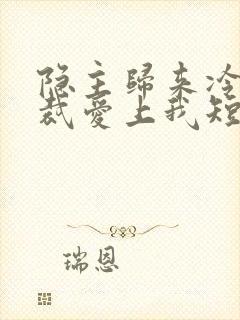 隐主歸来冷
裁愛上我短
瑞恩